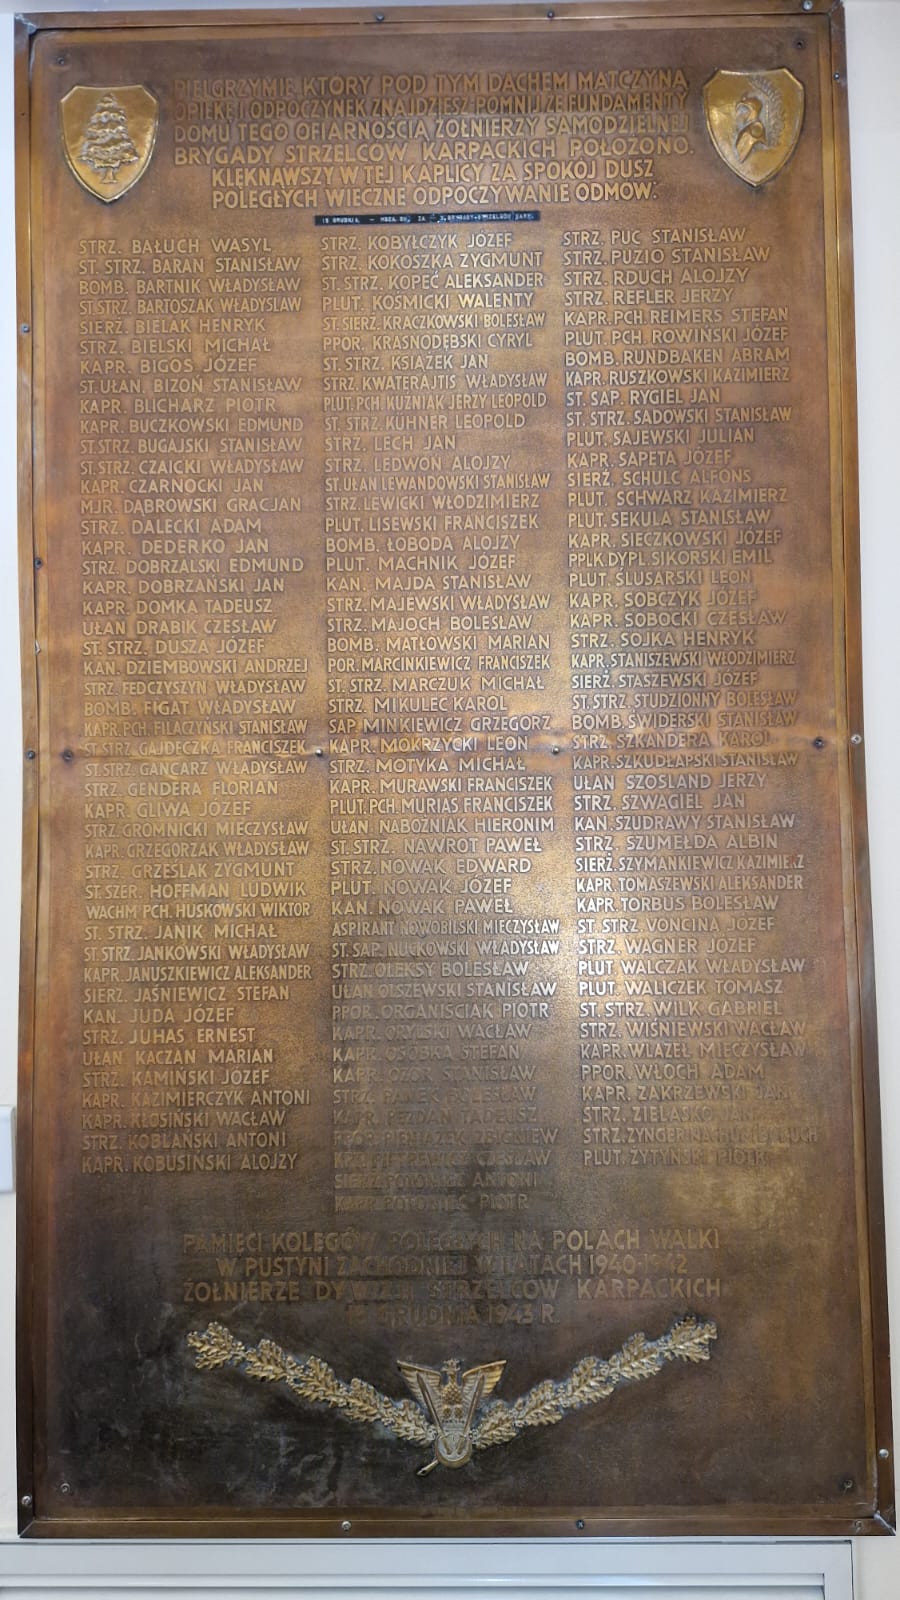 PIELGRZYMIE KTÓRY POD TYM DACHEM MATCZYNĄ
OPIEKĘ I ODPOCZYNEK ZNAJDZIESZ-POMNIJ ŻE FUNDAMENTY
DOMU TEGO OFIARNOŚCIĄ ŻOŁNIERZY SAMODZIELNEJ
BRYGADY STRZELCÓW KARPACKICH POŁOŻONO.
KLĘKNAWSZY W TEJ KAPLICY ZA SPOKÓJ DUSZ
POLEGŁYCH WIECZNE ODPOCZYWANIE ODMÓW.
STRZ. BAŁUCH WASYL
ST. STRZ. BARAN STANISŁAW
BOMB. BARTNIK WŁADYSŁAW
ST. STRZ. BARTOSZAK WŁADYSŁAW
SIERŻ. BIELAK HENRYK
STRZ. BIELSKI MICHAŁ
KAPR. BIGOS JÓZEF
ST. UŁAN. BIZOŃ STANISŁAW
KAPR. BLICHARZ PIOTR
KAPR. BUCZKOWSKI EDMUND
ST. STRZ. BUGAJSKI STANISŁAW
ST. STRZ. CZAICKI WŁADYSŁAW
KAPR. CZARNOCKI JAN
MJR. DĄBROWSKI GRACJAN
STRZ. DALECKI ADAM
KAPR. DEDERKO JAN
STRZ. DOBRZALSKI EDMUND
KAPR. DOBRZAŃSKI JAN
KAPR. DOMKA TADEUSZ
UŁAN DRABIK CZESŁAW
ST. STRZ. DUSZA JÓZEF
KAN. DZIEMBOWSKI ANDRZEJ
STRZ. FEDCZYSZYN WŁADYSŁAW
BOMB. FIGAT WŁADYSŁAW
KAPR. PCH. FILACZYŃSKI STANISŁAW
ST. STRZ. GAJDECZKA FRANCISZEK
ST. STRZ. GANCARZ WŁADYSŁAW
STRZ. GENDERA FLORIAN
KAPR. GLIWA JÓZEF
STRZ. GROMNICKI MIECZYSŁAW
KAPR. GRZEGORZAK WŁADYSŁAW
STRZ. GRZEŚLAK ZYGMUNT
ST. SZER. HOFFMAN LUDWIK
WACHM PCH. HUSKOWSKI WIKTOR
ST. STRZ. JANIK MICHAŁ
ST. STRZ. JANKOWSKI WŁADYSŁAW
KAPR. JANUSZKIEWICZ ALEKSANDER
SIERŻ. JAŚNIEWICZ STEFAN
KAN. JUDA JÓZEF
STRZ. JUHAS ERNEST
UŁAN KACZAN MARIAN
STRZ. KAMIŃSKI JÓZEF
KAPR. KAZIMIERCZYK ANTONI
KAPR. KŁOSIŃSKI WACŁAW
STRZ. KOBLAŃSKI ANTONI
KAPR. KOBUSIŃSKI ALOJZY
STRZ. KOBYŁCZYK JÓZEF
STRZ. KOKOSZKA ZYGMUNT
ST. STRZ. KOPEĆ ALEKSANDER
PLUT. KOŚMICKI WALENTY
ST. SIERŻ. KRACZKOWSKI BOLESŁAW
PPOR. KRASNODĘBSKI CYRYL
ST. STRZ. KSIĄŻEK JAN
STRZ. KWATERAJTIS WŁADYSŁAW
PLUT. PCH. KUŹNIAK JERZY LEOPOLD
ST. STRZ. KÜHNER LEOPOLD
STRZ. LECH JAN
STRZ. LEDWOŃ ALOJZY
ST. UŁAN LEWANDOWSKI STANISŁAW
STRZ. LEWICKI WŁODZIMIERZ
PLUT. LISEWSKI FRANCISZEK
BOMB. ŁOBODA ALOJZY
PLUT. MACHNIK JÓZEF
KAN. MAJDA STANISŁAW
STRZ. MAJEWSKI WŁADYSŁAW
STRZ. MAJOCH BOLESŁAW
BOMB. MATŁOWSKI MARIAN
POR. MARCINKIEWICZ FRANCISZEK
ST. STRZ. MARCZUK MICHAŁ
STRZ. MIKULEC KAROL
SAP. MINKIEWICZ GRZEGORZ
KAPR. MOKRZYCKI LEON
STRZ. MOTYKA MICHAŁ
KAPR. MURAWSKI FRANCISZEK
PLUT. PCH. MURIAS FRANCISZEK
UŁAN. NABOŻNIAK HIERONIM
ST. STRZ. NAWROT PAWEŁ
STRZ. NOWAK EDWARD
PLUT. NOWAK JÓZEF
KAN. NOWAK PAWEŁ
ASPIRANT NOWOBILSKI MIECZYSŁAW
ST. SAP. NUCKOWSKI WŁADYSŁAW
STRZ. OLEKSY BOLESŁAW
UŁAN OLSZEWSKI STANISŁAW
PPOR. ORGANIŚCIAK PIOTR
KAPR. ORYLSKI WACŁAW
KAPR. OSÓBKA STEFAN
KAPR. OZÓR STANISŁAW
STRZ. PANEK BOLESŁAW
KAPR. PEZDAN TADEUSZ
PPOR. PIENIĄŻEK ZBIGNIEW
CZESŁAW
SIERŻ. ANTONI
KAPR. PIOTR
STRZ. PUC STANISŁAW
STRZ. PUZIO STANISŁAW
STRZ. RDUCH ALOJZY
STRZ. REFLER JERZY
KAPR. PCH. REIMERS STEFAN
PLUT. PCH. ROWIŃSKI JÓZEF
BOMB. RUNDBAKEN ABRAM
KAPR. RUSZKOWSKI KAZIMIERZ
ST. SAP. RYGIEL JAN
ST. STRZ. SADOWSKI STANISŁAW
PLUT. SAJEWSKI JULIAN
KAPR. SAPETA JÓZEF
SIERŻ. SCHULC ALFONS
PLUT. SCHWARZ KAZIMIERZ
PLUT. SEKULA STANISŁAW
KAPR. SIECZKOWSKI JÓZEF
PPLK. DYPL. SIKORSKI EMIL
PLUT. ŚLUSARSKI LEON
KAPR. SOBCZYK JÓZEF
KAPR. SOBOCKI CZESŁAW
STRZ. SOJKA HENRYK
KAPR. STANISZEWSKI WŁODZIMIERZ
SIERŻ. STASZEWSKI JÓZEF
ST. STRZ. STUDZIONNY BOLESŁAW
BOMB. ŚWIDERSKI STANISŁAW
STRZ. SZKANDERA KAROL
KAPR. SZKUDŁAPSKI STANISŁAW
UŁAN SZOSLAND JERZY
STRZ. SZWAGIEL JAN
KAN. SZUDRAWY STANISŁAW
STRZ. SZUMEŁDA ALBIN
SIERŻ. SZYMANKIEWICZ KAZIMIERZ
KAPR. TOMASZEWSKI ALEKSANDER
KAPR. TORBUS BOLESŁAW
ST STRZ. VONCINA JÓZEF
STRZ. WAGNER JÓZEF
PLUT WALCZAK WŁADYSŁAW
PLUT. WALICZEK TOMASZ
ST. STRZ. WILK GABRIEL
STRZ. WIŚNIEWSKI WACŁAW
KAPR. WLAZEŁ MIECZYSŁAW
PPOR. WŁOCH ADAM
KAPR. ZAKRZEWSKI JAN
STRZ. ZIELASKO JAN
STRZ. ZYNGER
PLUT. ŻYTYŃSKI PIOTR
PAMIĘCI KOLEGÓW POLEGŁYCH NA POLACH WALKI
W PUSTYNI ZACHODNIEJ W LATACH 1940-1942
ŻOŁNIERZE DYWIZJI STRZELCÓW KARPACKICH
GRUDNIA 1943 R.